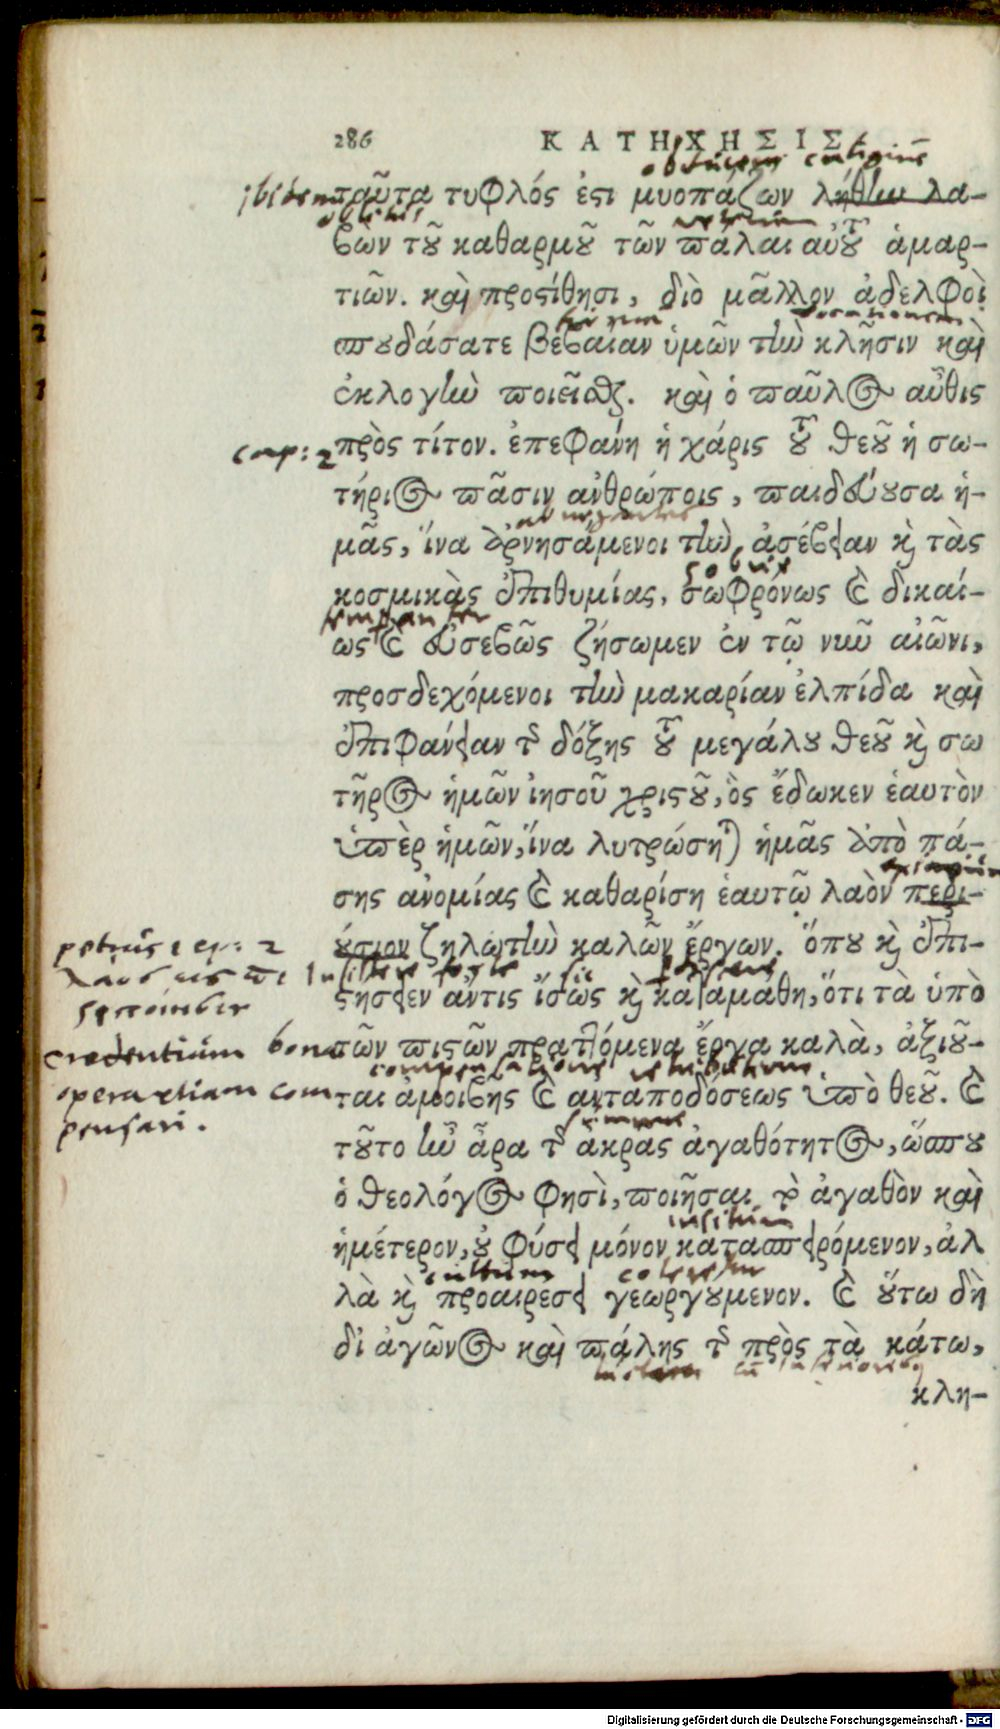 286 ΚΑΤΗΧΗΣΙΣ
ibidem ταῦτα τυφλός ἐστι μυοπάζων λήθην λα-
oblitus
βὼν τοῦ καθαρμοῦ τῶν πάλαι αὐτοῦ ἁμαρ-
τιῶν. καὶ προστίθησι, διὸ μᾶλλον ἀδελφοὶ
firmam vocationem
σπουδάσατε βεβαίαν ὑμῶν τὴν κλῆσιν καὶ
ἐκλογὴν ποιεῖσθαι. καὶ ὁ παῦλος αὖθις
cap: 2 πρὸς τίτον. ἐπεφάνη ἡ χάρις τοῦ θεοῦ ἡ σω-
τήριος πᾶσιν ἀνθρώποις, παιδεύουσα ἡ-
abnegantes
μᾶς, ἵνα ἀρνησάμενοι τὴν ἀσέβειαν καὶ τὰς
κοσμικὰς ἐπιθυμίας, σωφρόνως καὶ δικαί-
ως καὶ εὐσεβῶς ζήσωμεν ἐν τῷ νῦν αἰῶνι,
προσδεχόμενοι τὴν μακαρίαν ἐλπίδα καὶ
ἐπιφάνειαν τῆς δόξης τοῦ μεγάλου θεοῦ καὶ σω
τῆρος ἡμῶν ἰησοῦ χριστοῦ, ὃς ἔδωκεν ἑαυτὸν
ὑπὲρ ἡμῶν, ἵνα λυτρώσηται ἡμᾶς ἀπὸ πά-
σης ἀνομίας καὶ καθαρίση ἑαυτῷ λαὸν περι-
petrus 1 ep: 2
ούσιον ζηλωτὴν καλῶν ἔργων. ὅπου καὶ ἐπι-
λαος εις
στήσειεν ἄντις ἴσως καὶ καταμάθη, ὅτι τὰ ὑπὸ
credentium bona
τῶν πιστῶν πραττόμενα ἔργα καλὰ, ἀξιοῦ-
compensatione retributione
opera etiam com
ται ἀμοιβῆς καὶ ανταποδόσεως ὑπὸ θεοῦ. καὶ
pensari.
summae
τοῦτο ἦν ἆρα τῆς ἄκρας ἀγαθότητος, ὥσπου
ὁ θεολόγος φησὶ, ποιῆσαι τὸ ἀγαθὸν καὶ
insitum
ἡμέτερον, οὐ φύσει μόνον κατασπειρόμενον, ἀλ
cultum
λὰ καὶ προαιρεσει γεωργουμενον. καὶ οὕτω δὴ
δι ἀγῶνος καὶ πάλης τῆς πρὸς τὰ κάτω,
κλη-
Digitalisierung gefördert durch die Deutsche Forschungsgemeinschaft - DFG